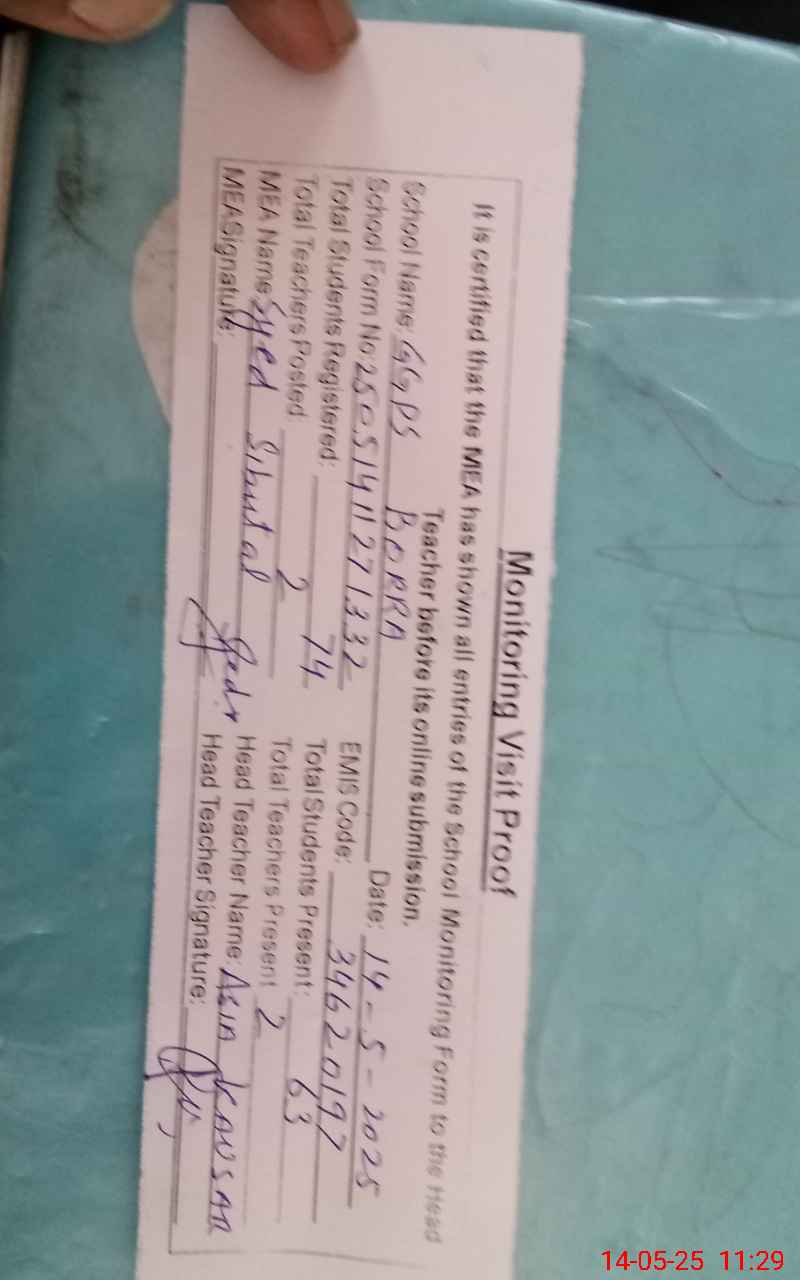 Monitoring Visit Proof
It is certified that the MEA has shown all entries of the School Monitoring Form to the Head
Teacher before its online submission.
School Name: GGPS BORRA
Date: 14-5-2025
School Form No: 250514112713 32
EMIS Code: 34620197
Total Students Registered: 74
Total Students Present: 63
Total Teachers Posted: 2
Total Teachers Present 2
MEA Name: Syed
Head Teacher Name: Asia KAUSAR
MEA Signature:
Head Teacher Signature:
14-05-25 11:29